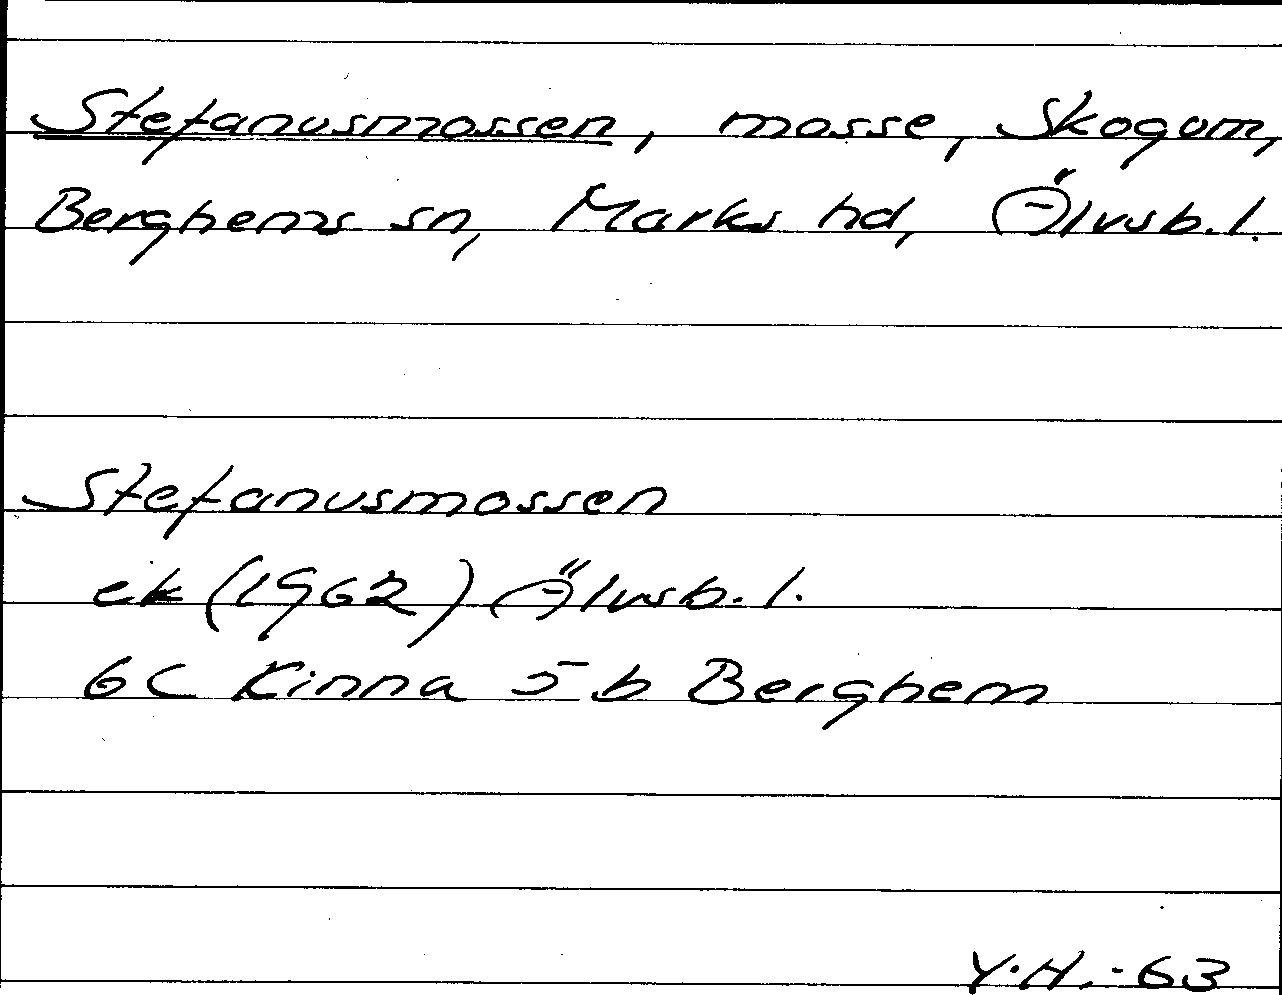 Stefanusmossen, mosse, Skogum,
Berghems sn, Marks hd, Älvsb. l.
Stefanusmossen
ek (1962) Älvsb. l.
6C Kinna 5 b Berghem
Y.H. -63